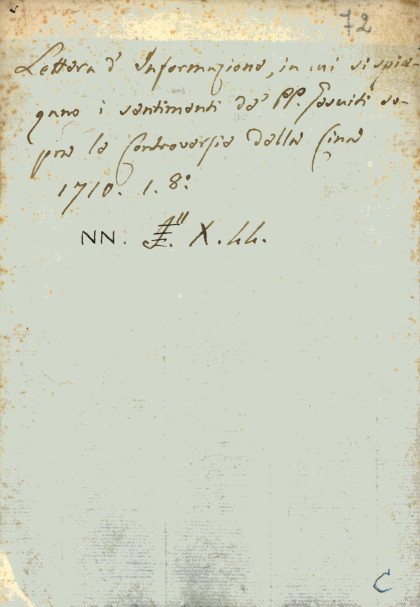 72
Lettera d' Informazione, in cui si spie-
gano i sentimenti de' PP. Gesuiti so-
pra le Controversie della Cina
1710. 1. 8.º
NN. X.44.
C